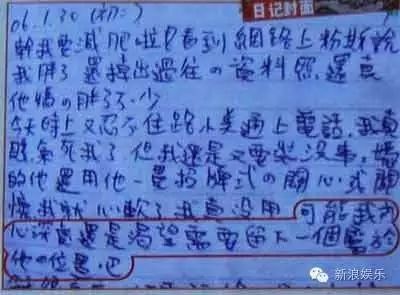 日记封面
06.1.30 (初二)
幹我要減肥啦!看到網路上粉斯說
我胖了還掉出過往の資料照.還真
他媽の胖了不少
今天晚上又忍不住跟小美通上電話.我真
氣死我了 但我還是又要裝没事.媽
的他還用他一曼招牌式の關心式關
懷我就心軟了我真没用 可能我内
心深處還是渴望需要留下一個屬於
他の位置.也
新浪娱乐